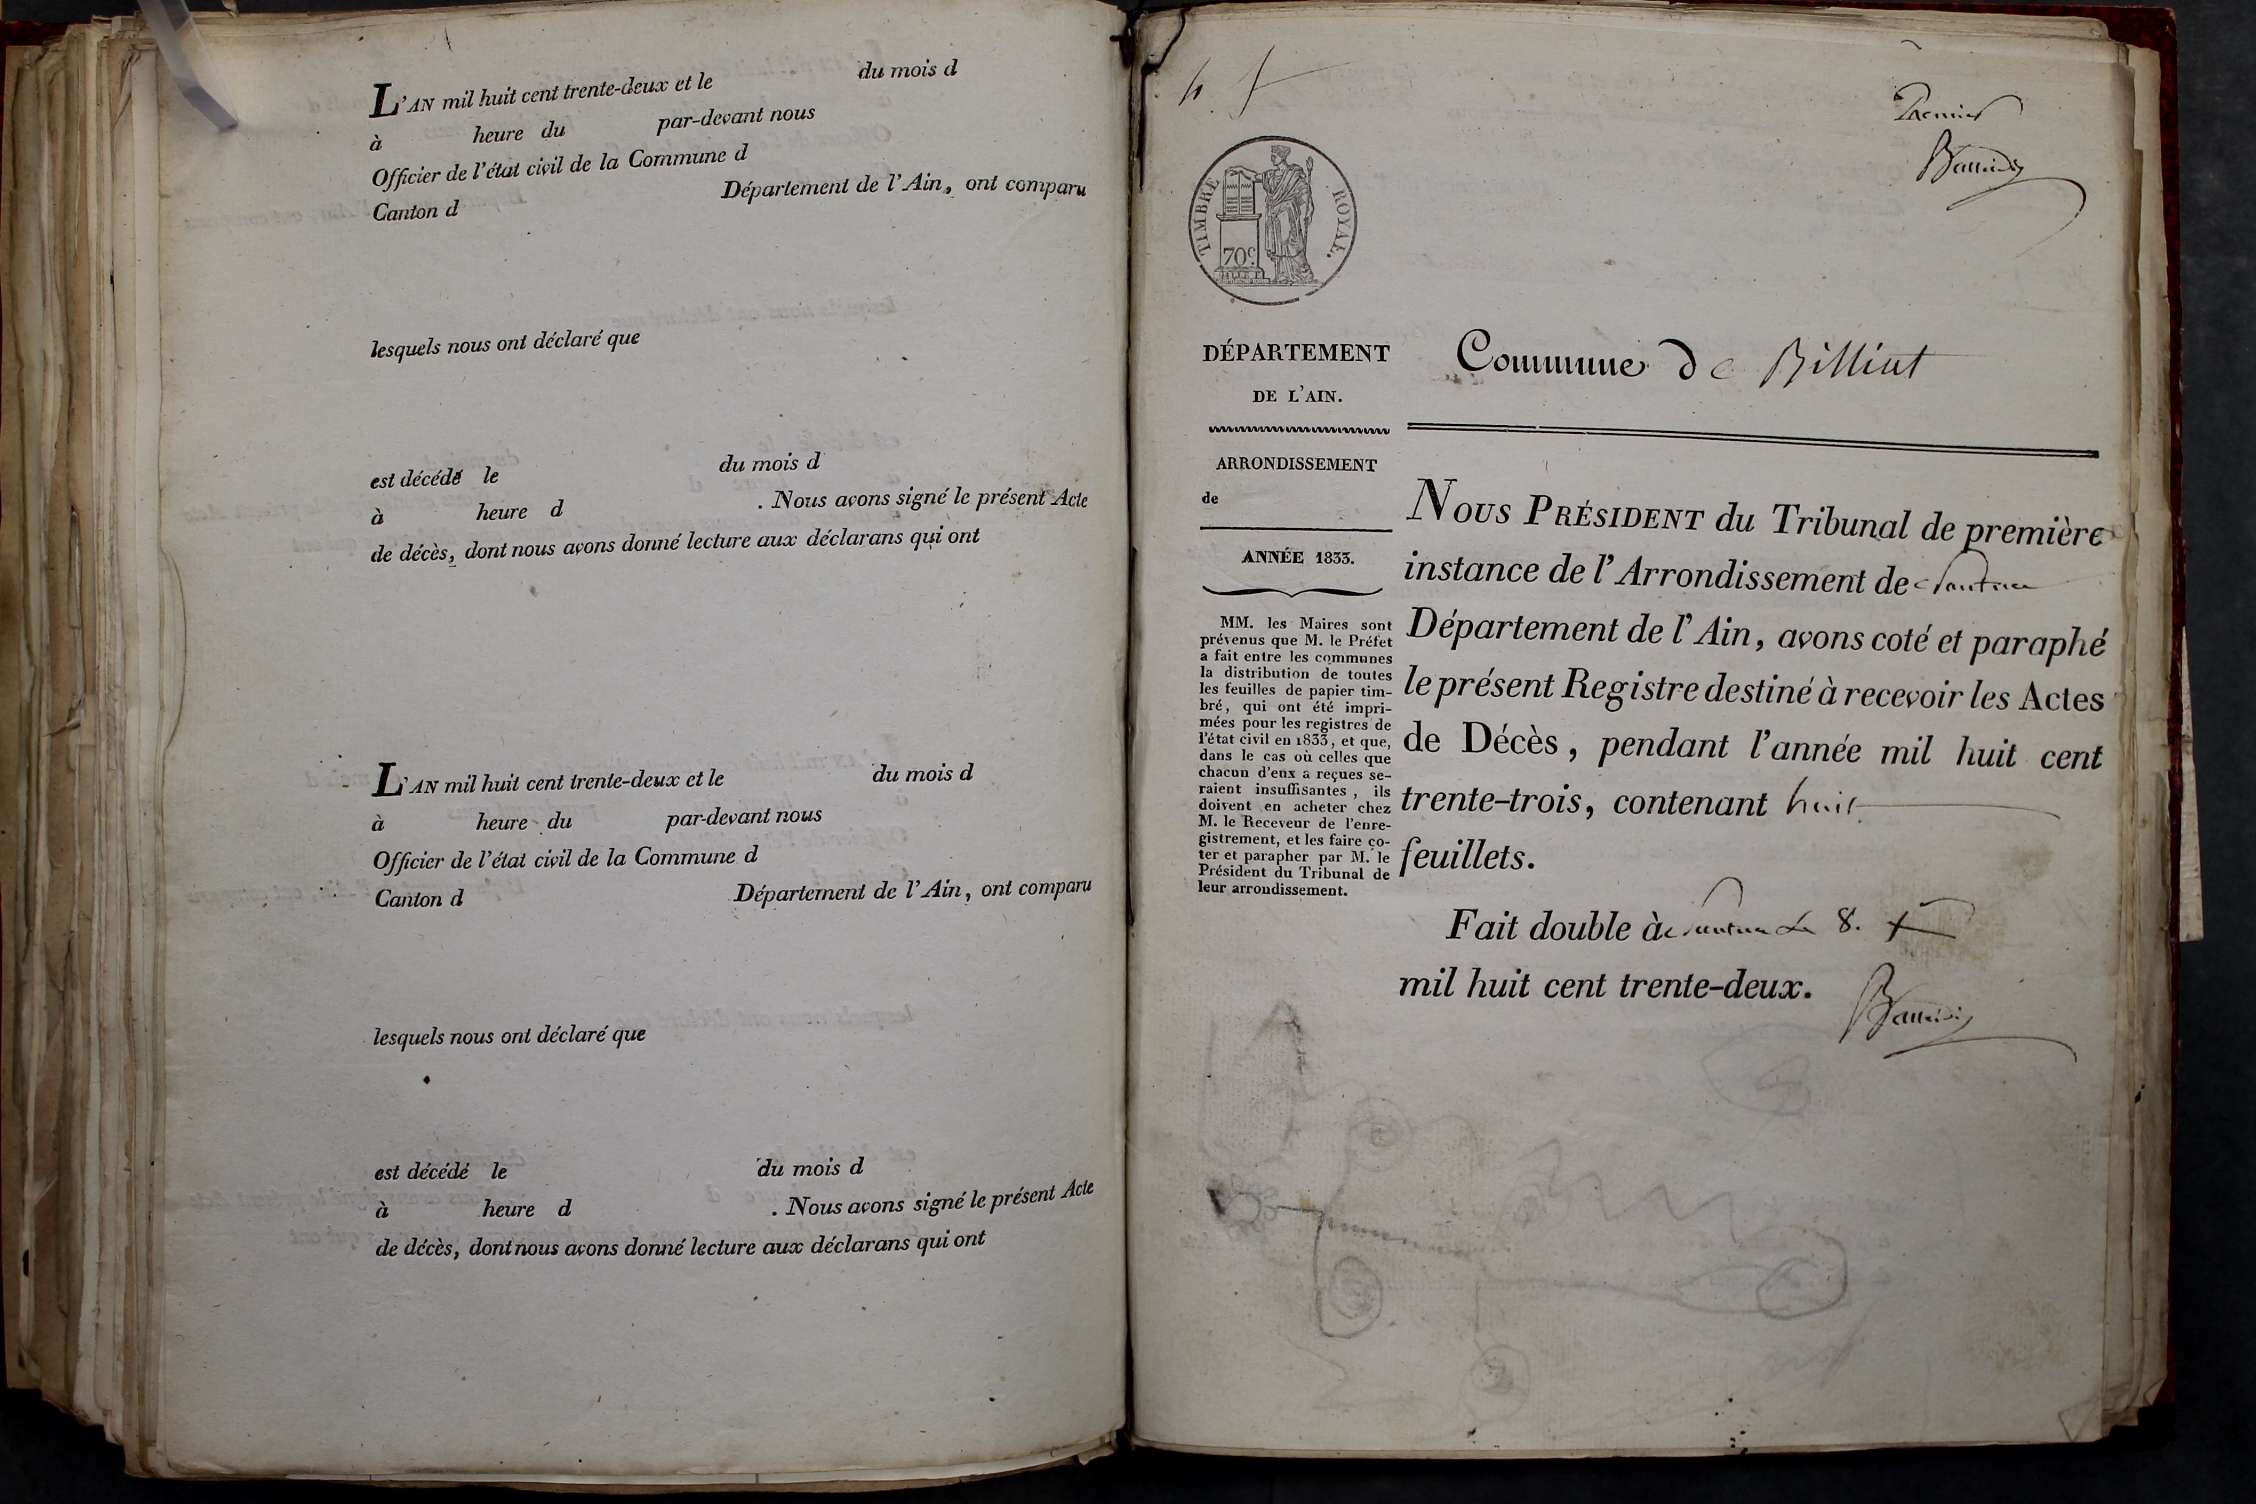 L'AN mil huit cent trente-deux et le du mois d
à heure du par-devant nous
Officier de l'état civil de la Commune d
Canton d Département de l'Ain, ont comparu
lesquels nous ont déclaré que
est décédé le du mois d
à heure d . Nous avons signé le présent Acte
de décès, dont nous avons donné lecture aux déclarans qui ont
L'AN mil huit cent trente-deux et le du mois d
à heure du par-devant nous
Officier de l'état civil de la Commune d
Canton d Département de l'Ain, ont comparu
lesquels nous ont déclaré que
est décédé le du mois d
à heure d . Nous avons signé le présent Acte
de décès, dont nous avons donné lecture aux déclarans qui ont
Premier
TIMBRE ROYAL.
70c.
DÉPARTEMENT
DE L'AIN.
ARRONDISSEMENT
de
ANNÉE 1833.
MM. les Maires sont
prévenus que M. le Préfet
a fait entre les communes
la distribution de toutes
les feuilles de papier tim-
bré, qui ont été impri-
mées pour les registres de
l'état civil en 1833, et que,
dans le cas où celles que
chacun d'eux a reçues se-
raient insuffisantes, ils
doivent en acheter chez
M. le Receveur de l'enre-
gistrement, et les faire co-
ter et parapher par M. le
Président du Tribunal de
leur arrondissement.
Commune de Billiat
NOUS PRÉSIDENT du Tribunal de première
instance de l'Arrondissement de Nantua
Département de l'Ain, avons coté et paraphé
le présent Registre destiné à recevoir les Actes
de Décès, pendant l'année mil huit cent
trente-trois, contenant huit
feuillets.
Fait double à Nantua le 8.
mil huit cent trente-deux.